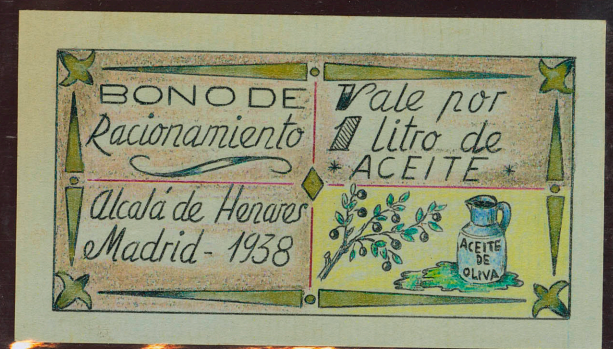 BONO DE
Racionamiento
Alcalá de Henares
Madrid - 1938
Vale por
1 litro de
* ACEITE *
ACEITE
DE
OLIVA